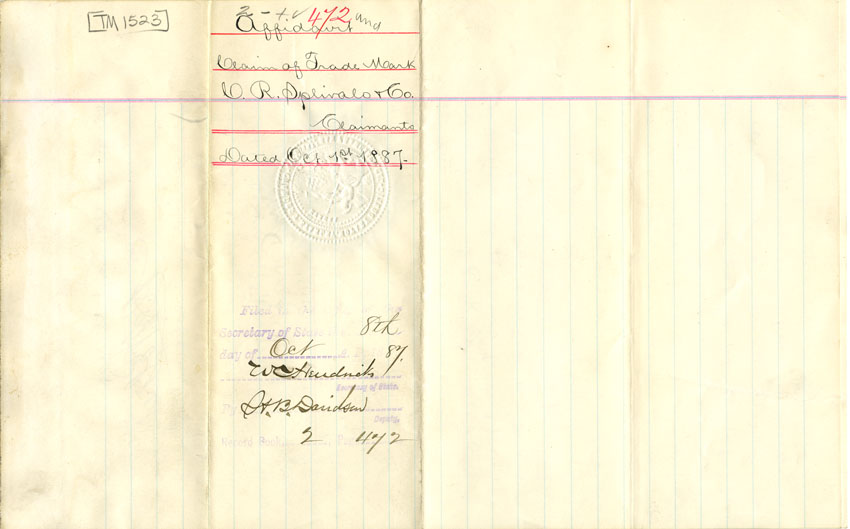 TM 1523
2 - 472
Affidavit and
Claim of Trade Mark
C. R. Splivalo & Co.
Claimants
Dated Oct 1st 1887.
Filed in the
Secretary of State 8th
day of Oct 87
W C Hendricks
Secretary of State.
By H. B. Davidson
Deputy.
Record Book 2 472